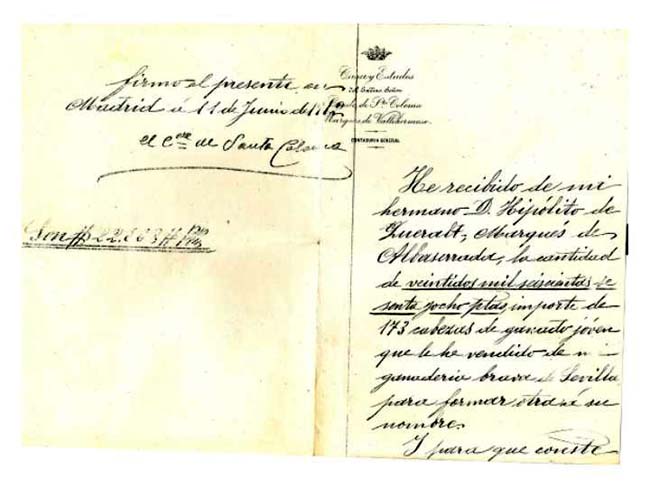 Casa y Estados
del Excmo. Señor
Conde de Sta. Coloma
Marques de Vallehermoso
CONTADURIA GENERAL
He recibido de mi
hermano D. Hipólito de
Queralt, Marqués de
Albaserrada, la cantidad
de veintidos mil seiscientas se
senta y ocho ptas importe de
173 cabezas de ganado jóven
que le he vendido de mi
ganaderia brava de Sevilla
para formar otra á su
nombre.
I para que conste
firmo el presente en
Madrid á 11 de Junio de
el Cde de Santa Coloma
Son #22.663# Ptas